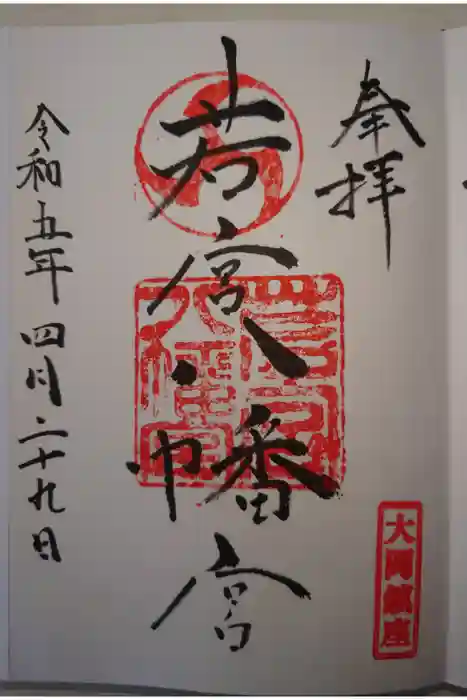 奉拝
若宮八幡宮
令和五年四月二十九日